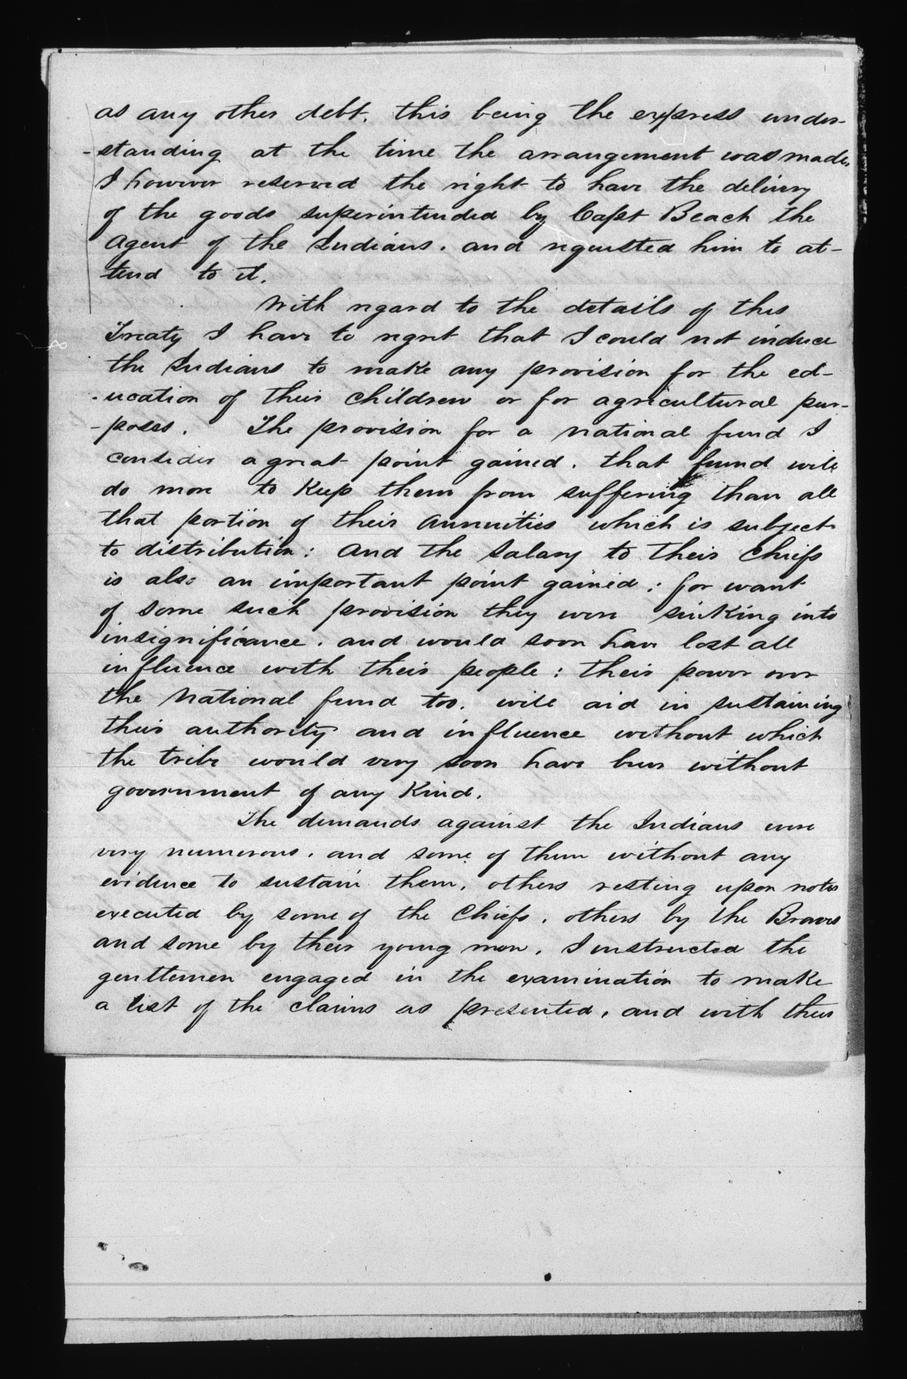 as any other debt, this being the express under-
-standing at the time the arrangement was made,
I however reserved the right to have the delivery
of the goods superintended by Capt Beach the
Agent of the Indians. and requested him to at-
tend to it.
With regard to the details of this
Treaty I have to regret that I could not induce
the Indians to make any provision for the ed-
-ucation of their children or for agricultural pur-
-poses. The provision for a national fund I
consider a great point gained. that fund will
do more to keep them from suffering than all
that portion of their annuities which is subject
to distribution: And the Salary to their Chiefs
is also an important point gained; for want
of some such provision they were sinking into
insignificance. and would soon have lost all
influence with their people: their power over
the National fund too. will aid in sustaining
their authority and influence without which
the tribe would very soon have been without
government of any kind.
The demands against the Indians were
very numerous. and some of them without any
evidence to sustain them. others resting upon notes
executed by some of the Chiefs. others by the Braves
and some by their young men. I instructed the
genttemen engaged in the examination to make
a list of the claims as presented, and with their